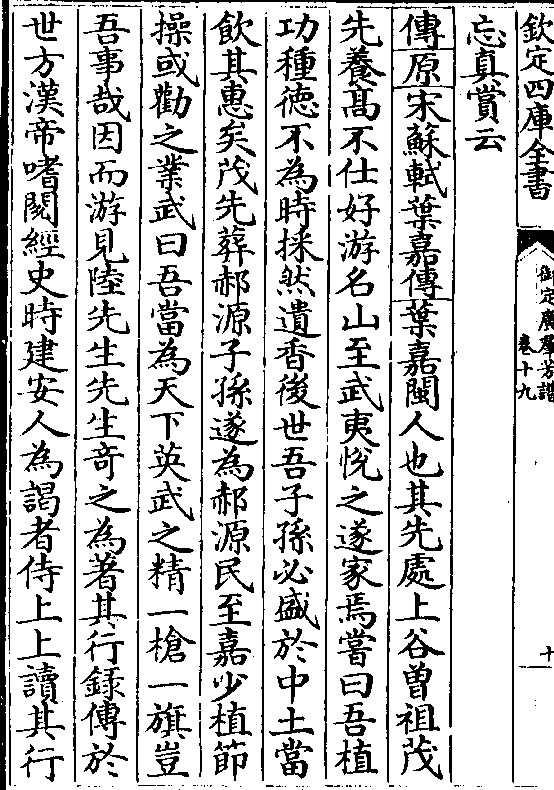 欽定四庫全書
御定廣羣芳譜
卷十九
十
忘真賞云
傳原宋蘇軾葉嘉傳葉嘉閩人也其先處上谷曾祖茂
先養髙不仕好游名山至武夷恱之遂家焉嘗曰吾植
功種徳不為時採然遺香後世吾子孫必盛於中土當
飲其惠矣茂先葬郝源子孫遂為郝源民至嘉少植節
操或勸之業武曰吾當為天下英武之精一槍一旗豈
吾事哉因而游見陸先生先生竒之為著其行録傳於
世方漢帝嗜閱經史時建安人為謁者侍上上讀其行